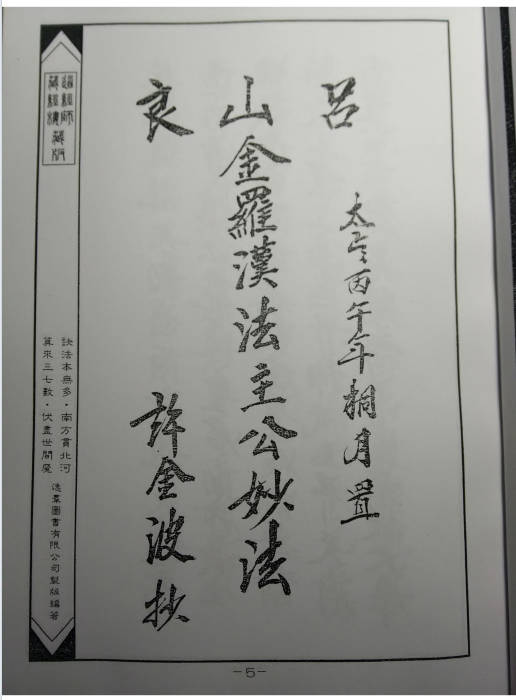 呂
太丙午年桐月置
山金羅漢法主公妙法
良
許金波抄
訣法本無多・南方貫北河
算來三七數・伏盡世間魔
逸羣圖書有限公司製版編著
-5-